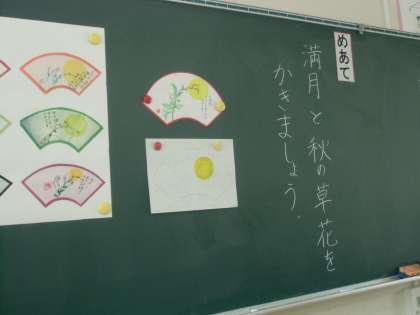 めあて
満月と秋の草花を
かきましょう。